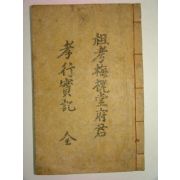 祖考梅視堂府君
孝行實記 全